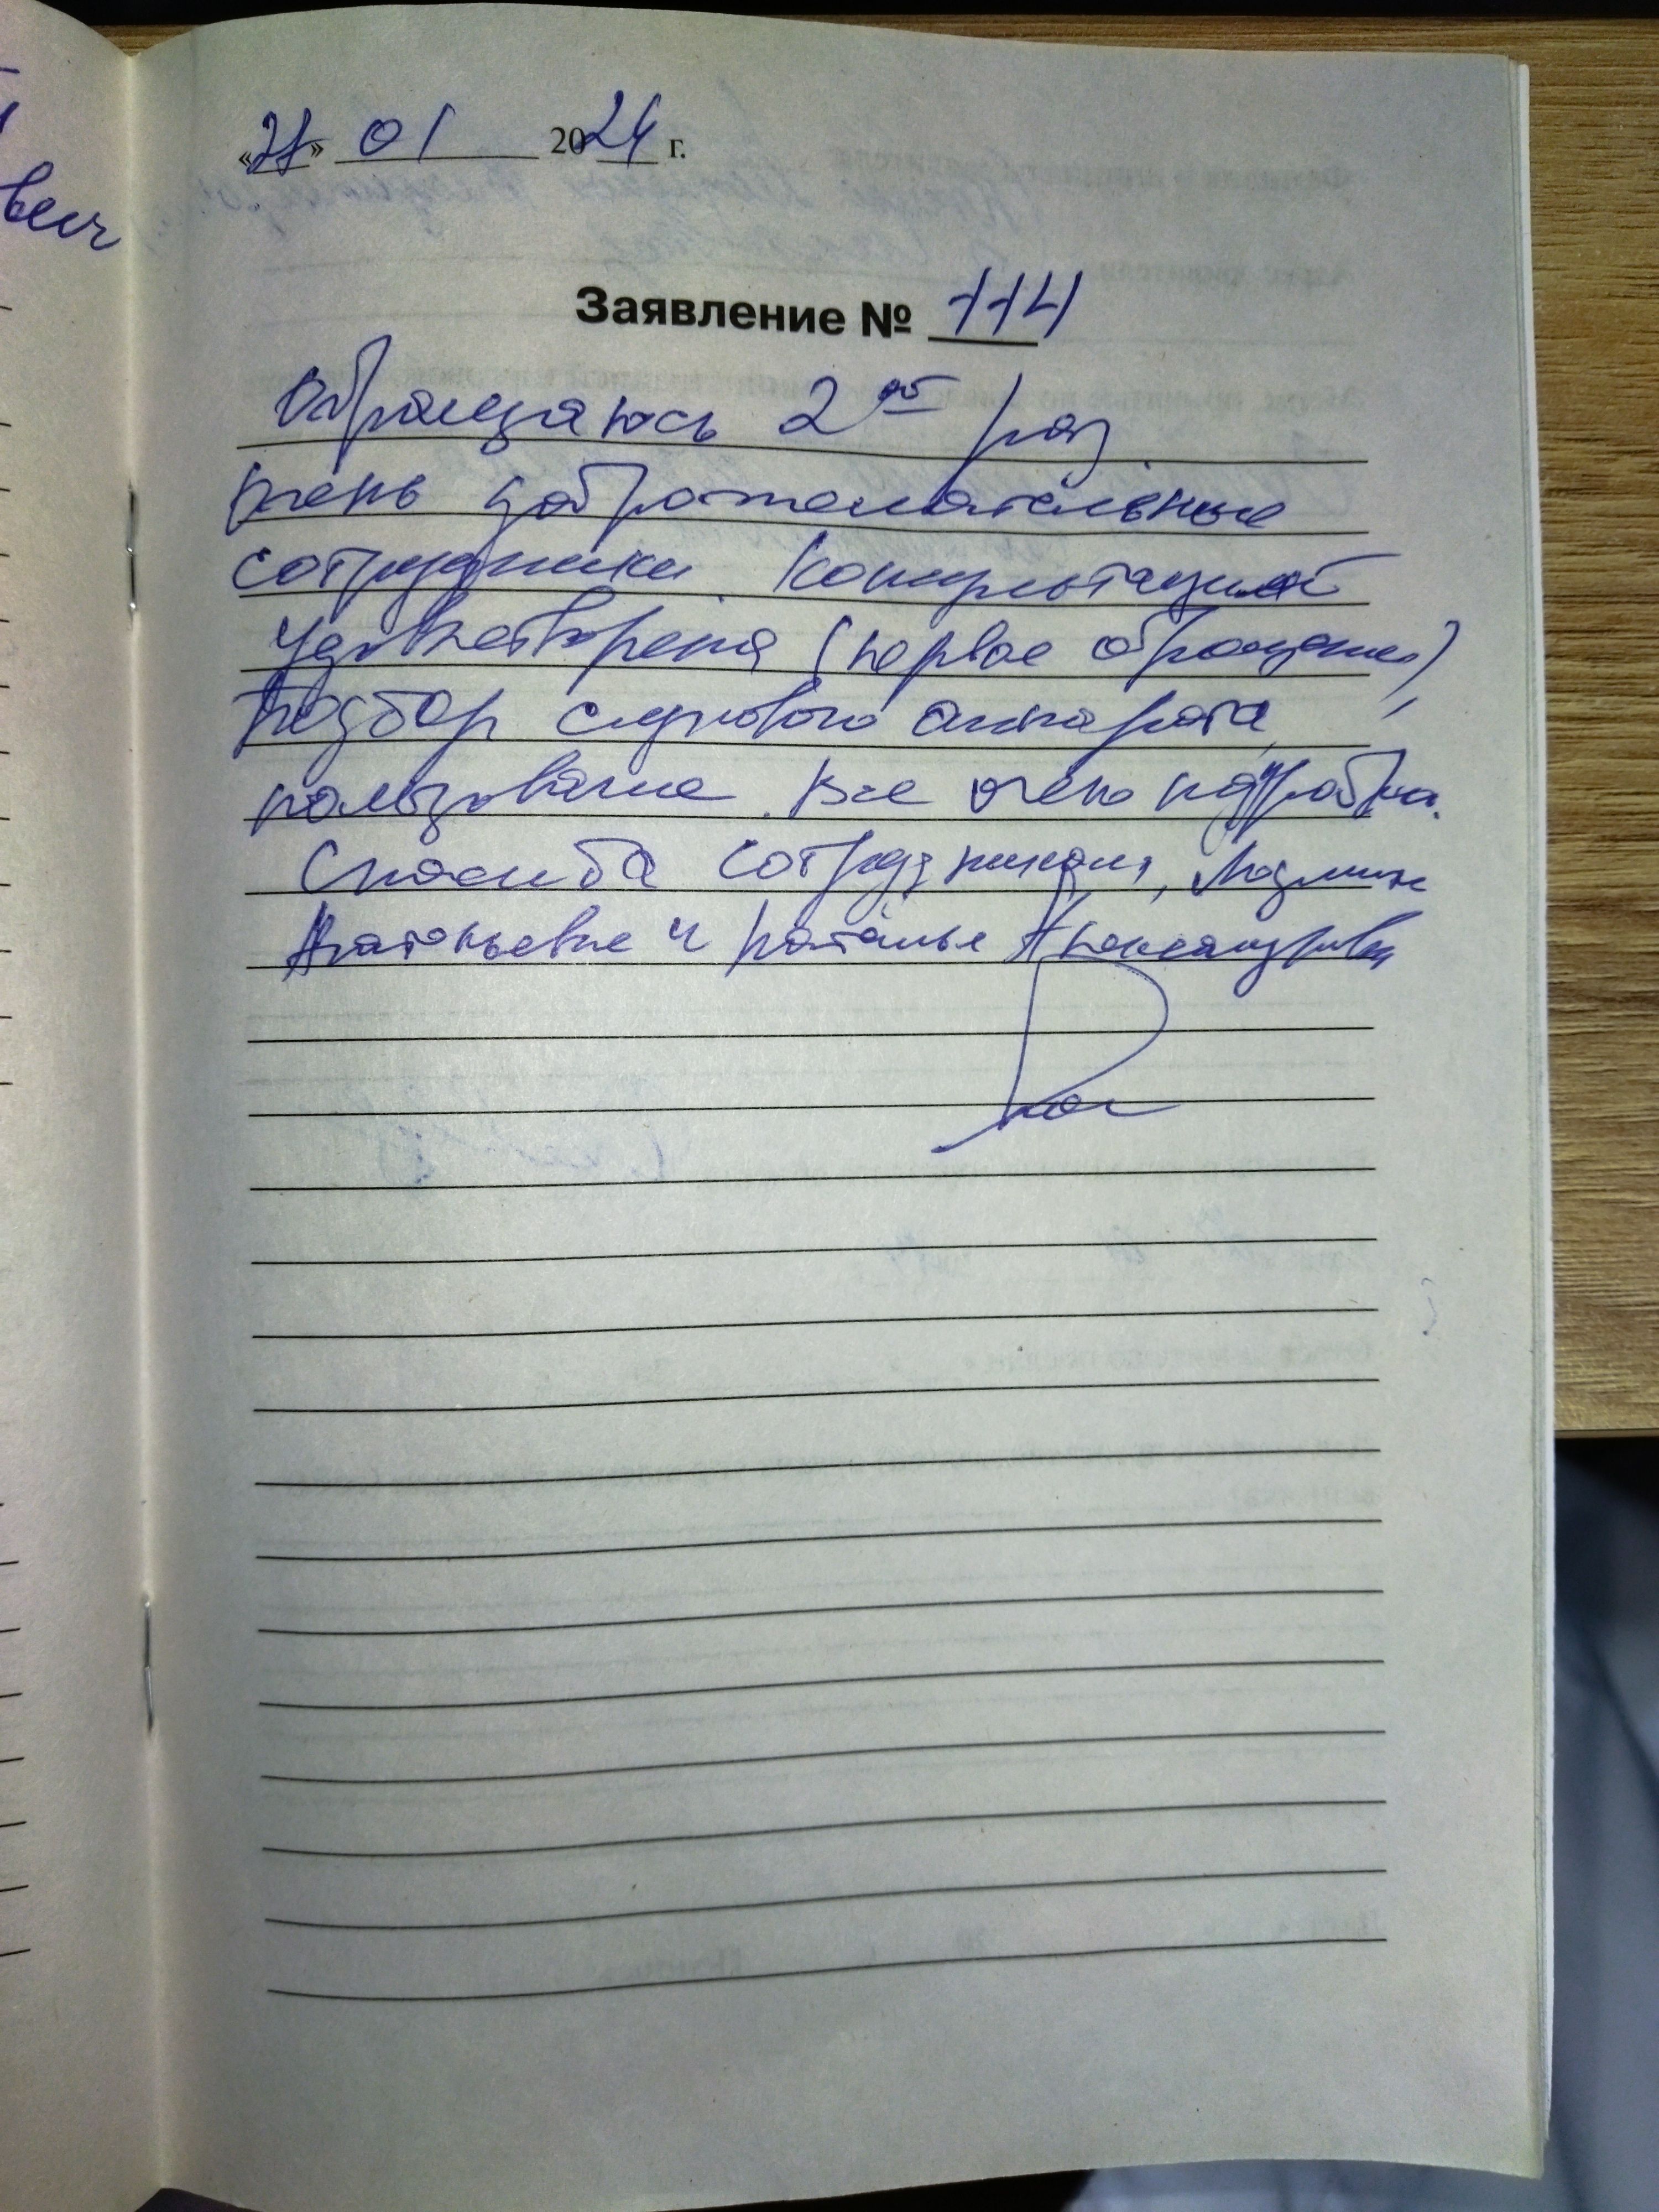 вич
«27» 01 2024 г.
Заявление № 114
Обращаюсь 2ой раз.
Очень доброжелательные
сотрудники. Консультацией
удовлетворена (первое обращение),
Подбор слухового аппарата,
пользование. Все очень подробно.
Спасибо сотрудникам, Людмиле
Анатольевне и Наталье Александровне